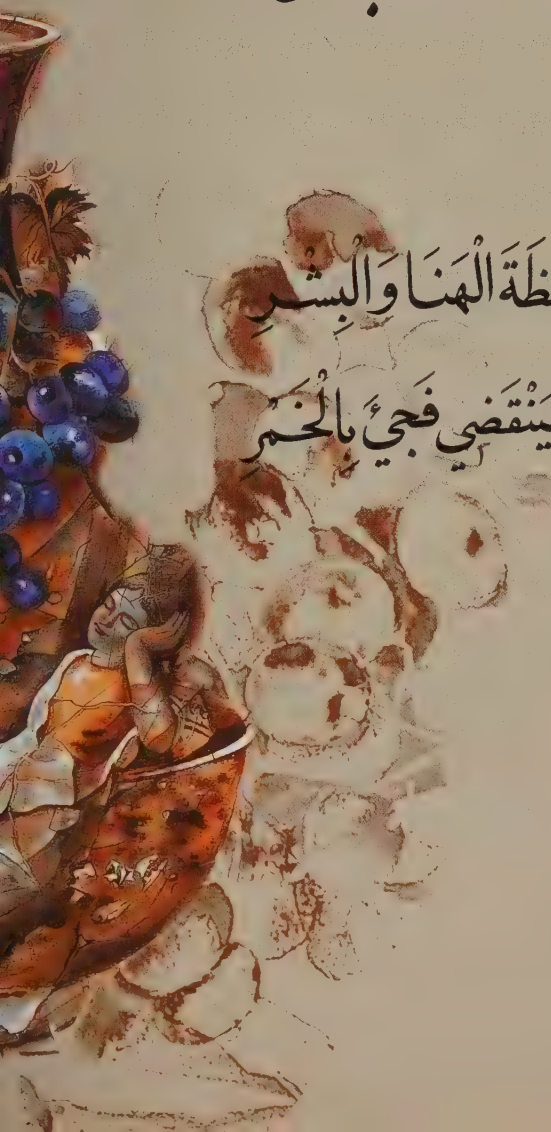 الْهَنَا وَالْبِشْرِ
يَنْقَضِي فَجِيْءَ بِالْخَمْرِ